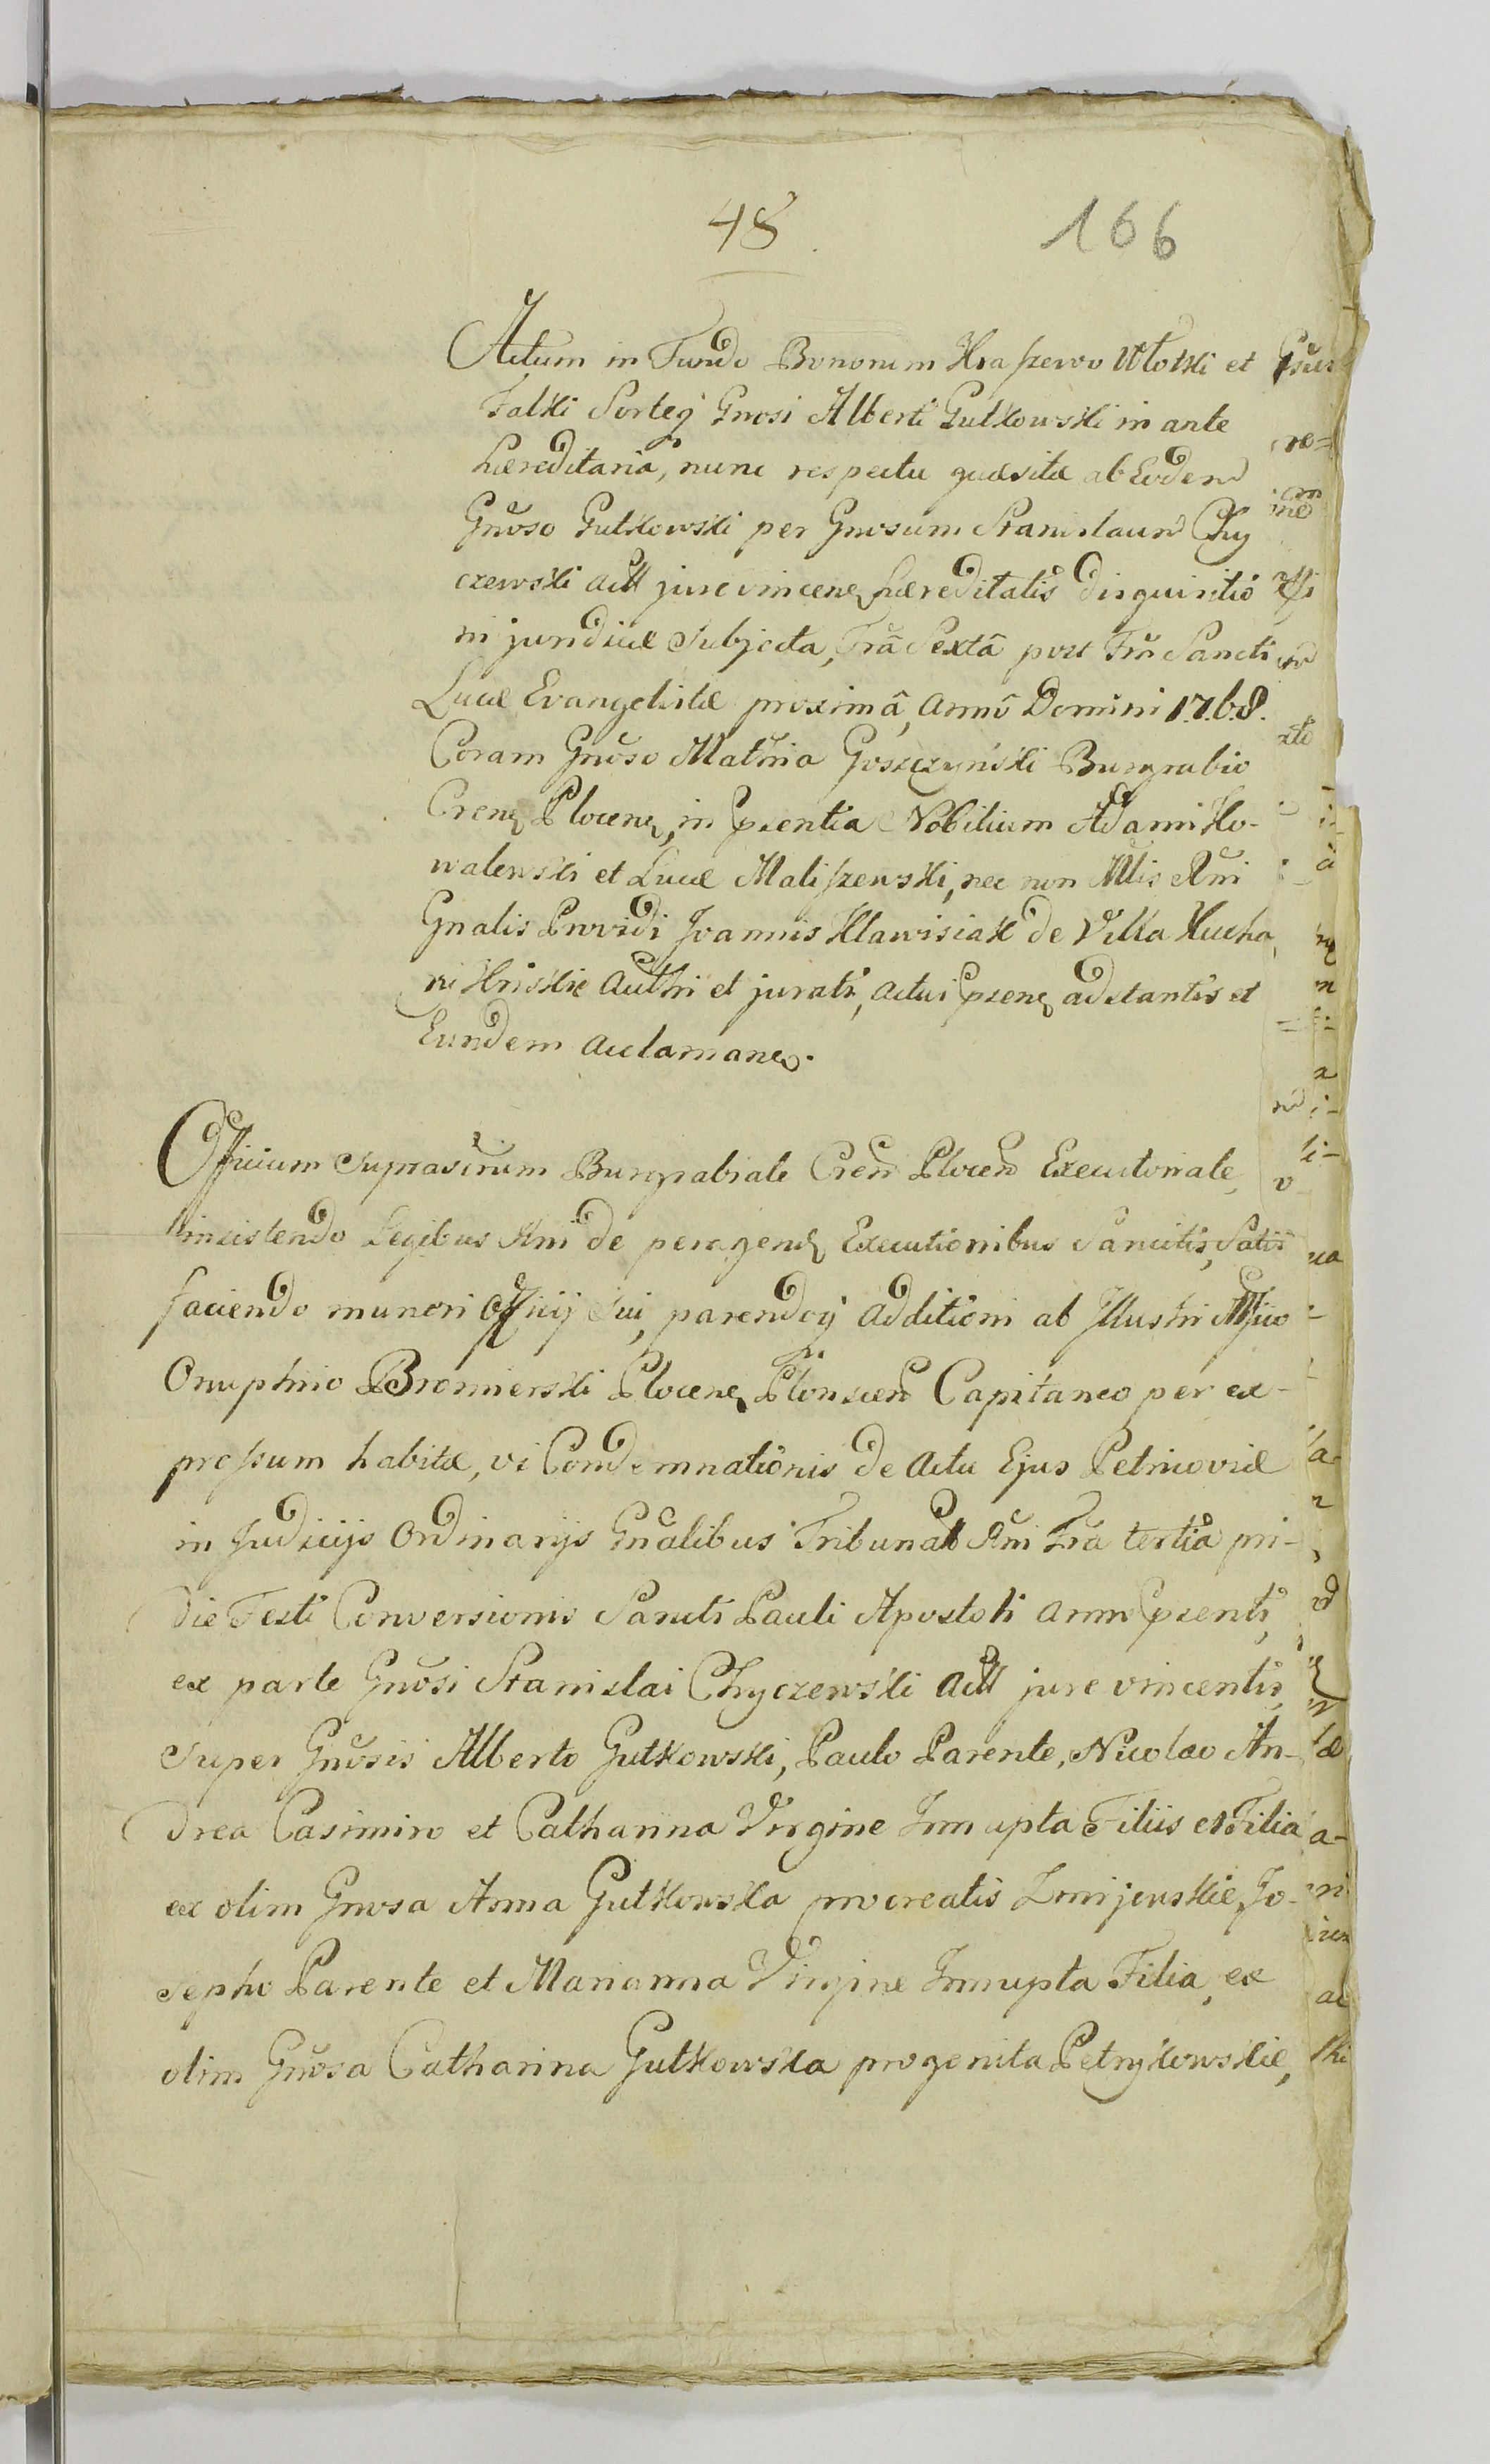 48.
166
Actum in Fundo Bonorum Kraszewo Witoski et
Falki Sorteq Gnosi Alberti Gutkowski in ante
hæreditaria, nunc respectu quæsitæ ab Eodem
Gnoso Gutkowski per Gnosum Stanislaum Chy
czewski Actt jure vincen hæreditatis disquisitio
ni juridicæ subjecta, Fria Sexta post Fm Sancti
Lucæ Evangelistæ proximâ, Annô Domini 1.7.6.8.
Coram Gnoso Mathia Goszczynski Burgrabio
Cren Plocen, in Psentia Nobilium Adami Ko-
walewski et Lucæ Maliszewski, nec non Mlis Rni
Gnalis Providi Joannis Klawisiak de Villa Kucha
ri Kriskie Authi et jurati, Actui Psen adstantis et
Eundem acclamanes.
Officium suprascrum Burgrabiale Cren Plocen Executoriale,
insistendo Legibus Rni de peragend Executionibus Sancitis, Satis
faciendo muneri Officij Sui, parendoq additioni ab Illustri Mfico
Onuphrio Bromierski Plocen Plonscen Capitaneo per ex-
pressum habitæ, vi Condemnationis de Actu Ejus Petricoviæ
in Judicijs Ordinarijs Gnalibus Tribunal Rni Fria tertia pri-
die Festi Conversionis Sancti Pauli Apostoli Anno Psenti,
ex parte Gnosi Stanislai Chyczewski Actt jure vincentis,
super Gnosis Alberto Gutkowski, Paulo Parente, Nicolao An-
drea Casimiro et Catharina Virgine Innupta Filiis et Filia
ex olim Gnosa Anna Gutkowska procreatis Zmijewskie, Jo-
sepho Parente et Marianna Virgine Innupta Filia, ex
olim Gnosa Catharina Gutkowska progenita Petrykowskie,